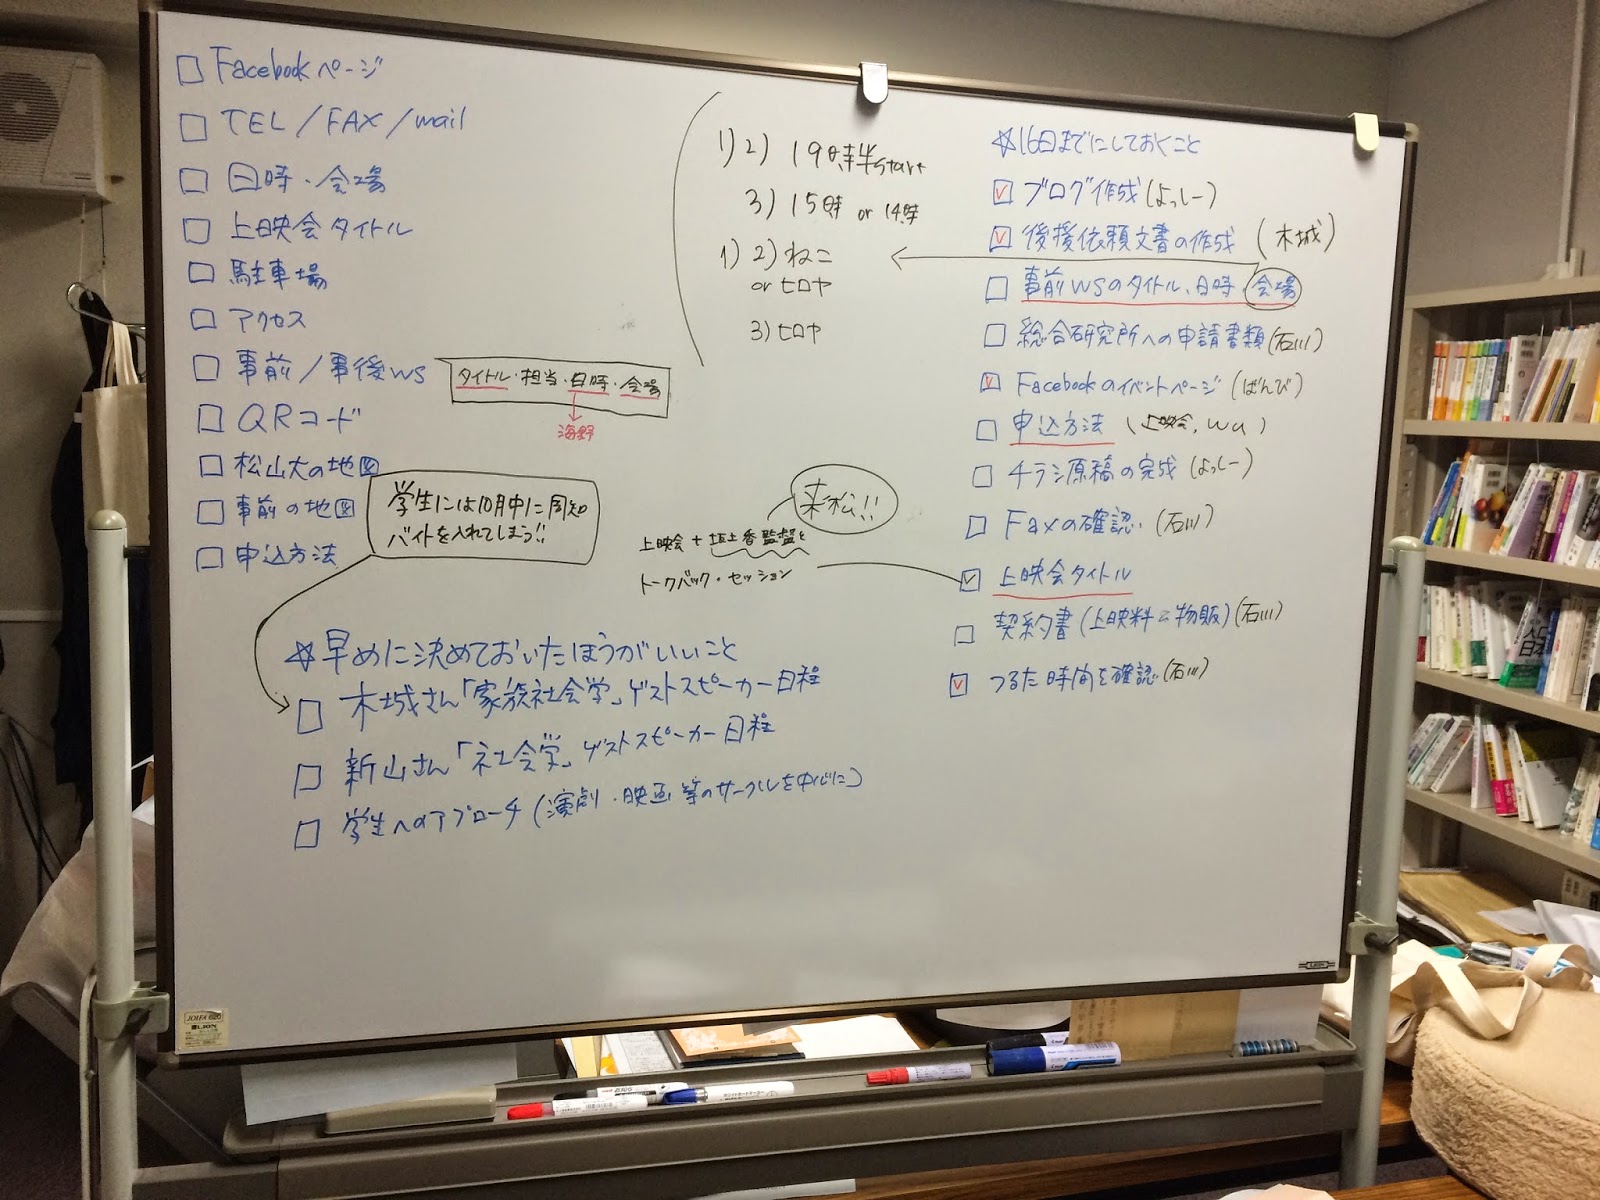 □ Facebookページ
□ TEL/FAX/mail
□ 日時・会場
□ 上映会タイトル
□ 駐車場
□ アクセス
□ 事前/事後WS
タイトル・担当・日時・会場
海野
□ QRコード
□ 松山大の地図
□ 事前の地図
□ 申込方法
学生には10月中に周知
バイトを入れてしまう!!
☆早めに決めておいたほうがいいこと
□ 木城さん「家族社会学」ゲストスピーカー日程
□ 新山さん「社会学」ゲストスピーカー日程
□ 学生へのアプローチ(演劇・映画等のサークルを中心に)
1)2) 19時半start
3) 15時 or 14時
1)2) ねこ
or ヒロヤ
3) ヒロヤ
来松!!
上映会+坂上香監督と
トークバック・セッション
☆16日までにしておくこと
☑ ブログ作成(よっしー)
☑ 後援依頼文書の作成 (木城)
□ 事前WSのタイトル、日時、会場
□ 総合研究所への申請書類(石川)
☑ Facebookのイベントページ(ばんび)
□ 申込方法 (上映会,
□ チラシ原稿の完成(よっしー)
□ Faxの確認 (石川)
☑ 上映会タイトル
□ 契約書(上映料と物販)(石川)
☑ つるた時間を確認(石川)
LION
JOIFA 620
LION